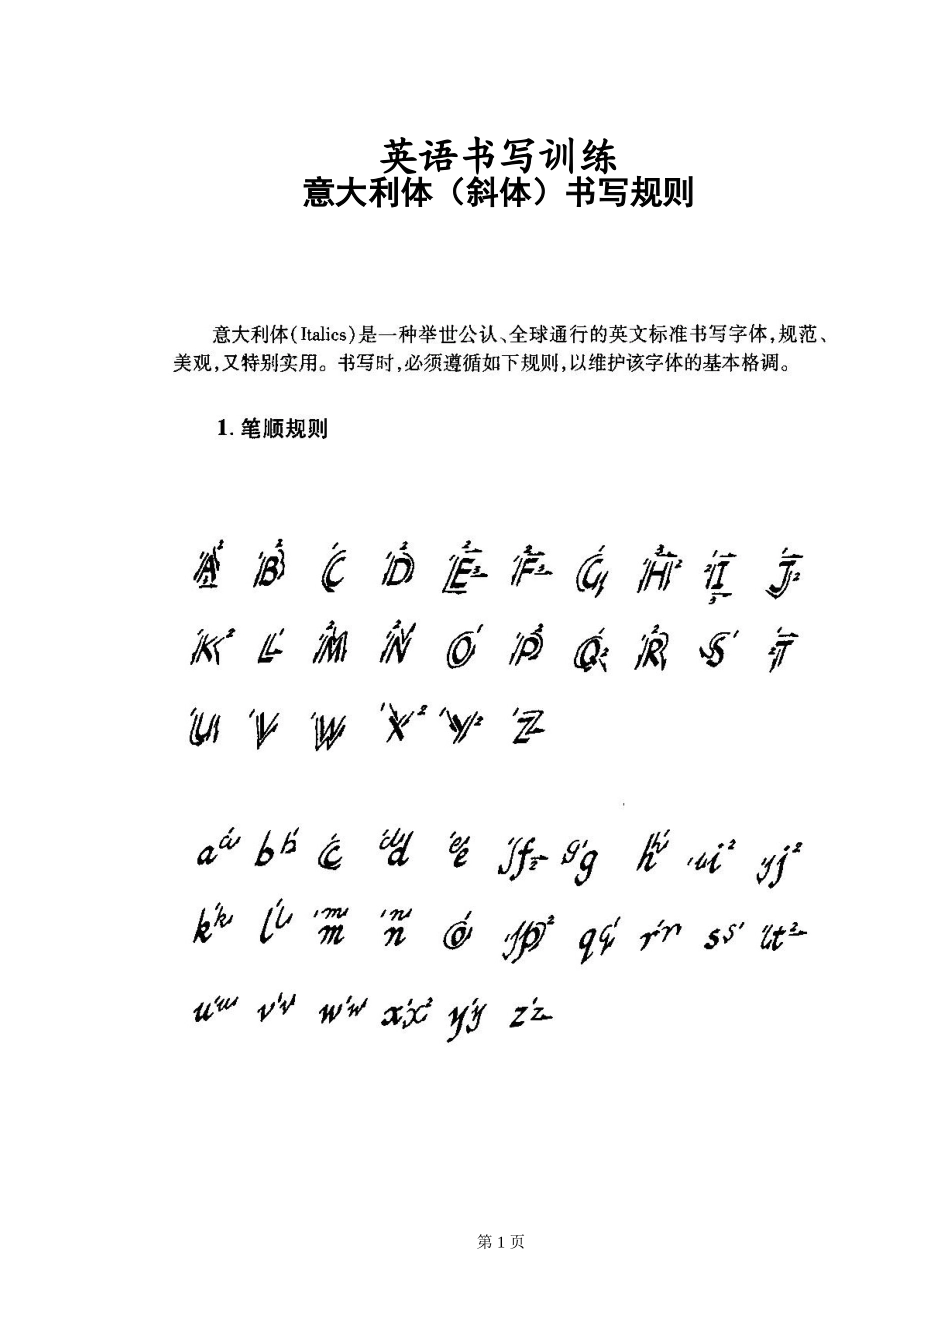 英语书写训练
意大利体（斜体）书写规则
意大利体(Italics)是一种举世公认、全球通行的英文标准书写字体,规范、
美观,又特别实用。书写时,必须遵循如下规则,以维护该字体的基本格调。
1. 笔顺规则
A B C D E F G H I J
K L M N O P Q R S T
U V W X Y Z
a b c d e f g h i j
k l m n o p q r s t
u v w x y z
第 1 页